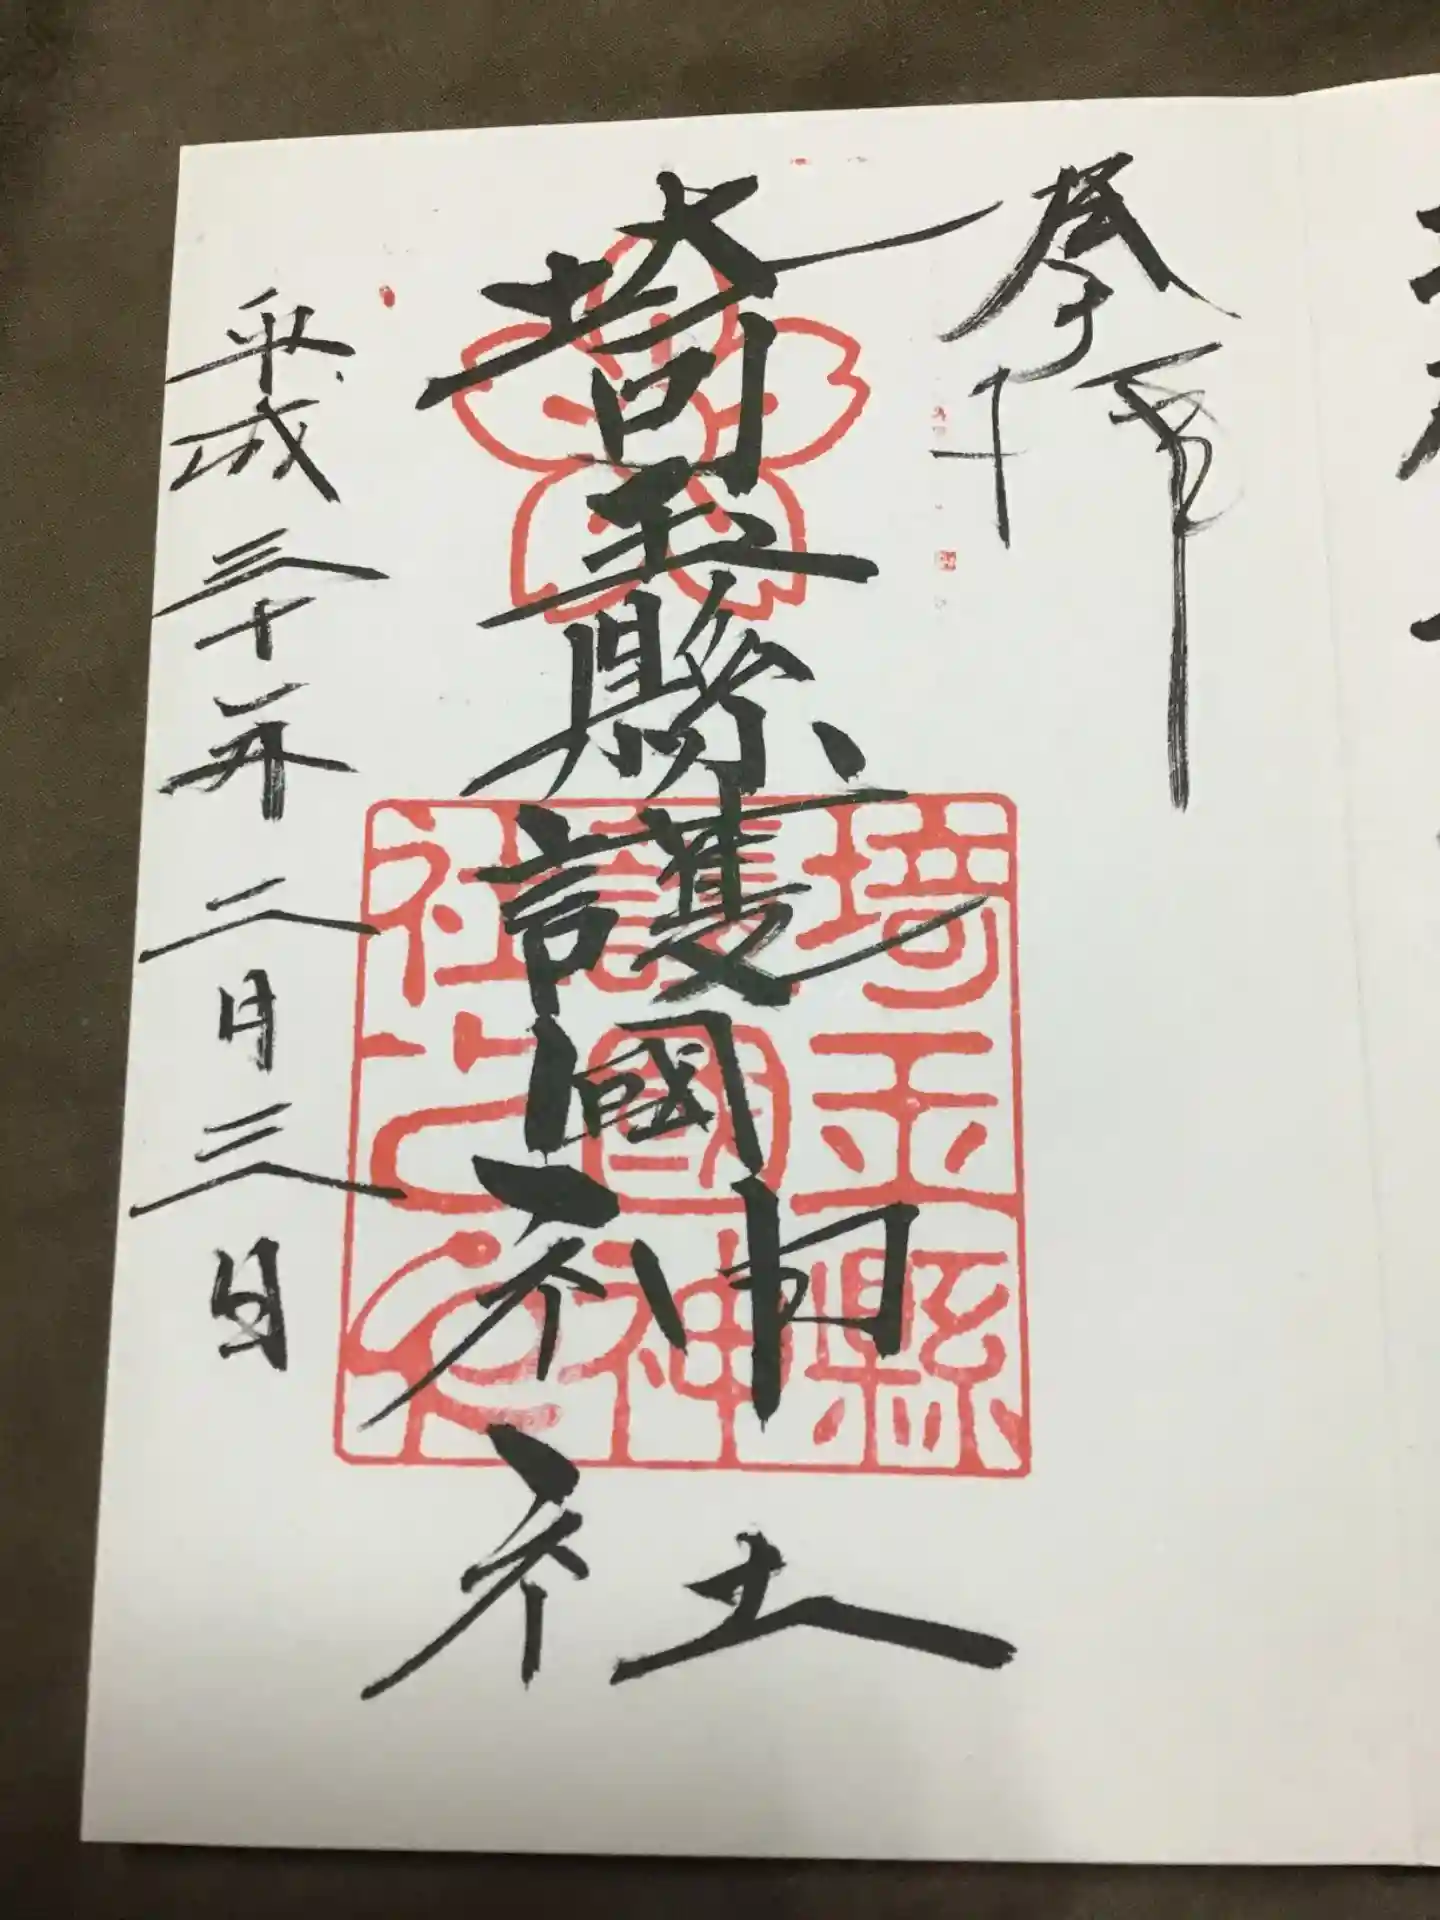 奉拝
埼玉縣護國神社
平成三十年二月三日
埼玉縣
護國神
社之印